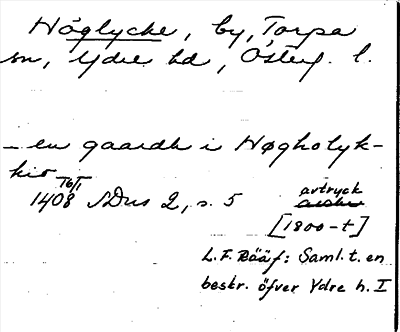 Höglycke, by, Torpa
sn, Ydre hd, Österg. l.
– en gaardh i Høgholyk-
kio
16/1
1408 SDns 2, s. 5
avtryck
[1800-t]
L.F. Rääf: Saml. t. en
beskr. öfver Ydre h. I